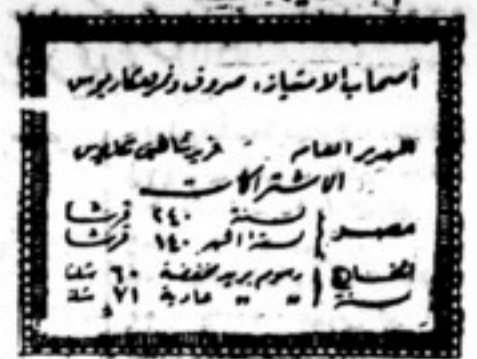 أصحاب الامتياز، صروف ونمر ومكاريوس
المدير العام فريد شاهين مكاريوس
الاشتراكات
مصر { لسنة ٢٤٠ قرشا
لستة اشهر ١٤٠ قرشا
الخارج { رسوم بريد مخفضة ٦٠ شلنا
سنة " " عادية ٧١ شلنا